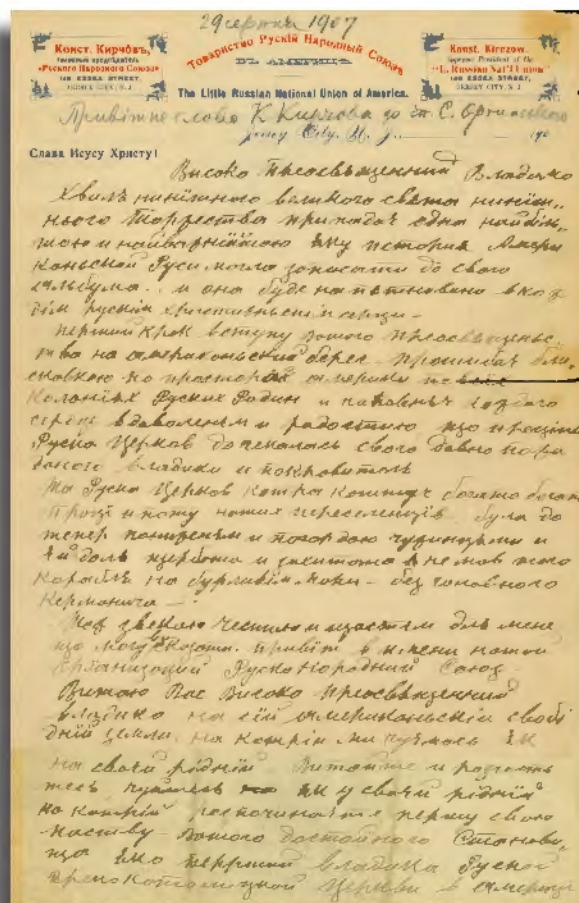 29 серпня 1907
Конст. Кирчôвъ,
головный предсѣдатель
«Руского Народного Союза»
108 ESSEX STREET,
JERSEY CITY, N. J.
Товариство Рускій Народный Союзъ
въ Америцѣ
The Little Russian National Union of America.
Konst. Kirczow.
Supreme President of the
"L. Russian Nat'l Union"
108 ESSEX STREET,
JERSEY CITY, N. J.
Привітне слово К Кирчова до еп. С. Ортинського
Jersey City, N. J., 190
Слава Исусу Христу!
Високо Преосвященний Владико
Хвиля нинїшного великого свята нинїш„
нього Торжества припадає одна найбіль„
шою и найварнїйшою яку история Амери
каньскої Руси могла записати до свого
альбума.. и она буде напятнована в каж
дім рускім християньскім серци –
перший крок вступу Вашого Преосвященьс
тва на американьский берег – прошибає бли„
скавкою по просторах америки по всїх
Кольонїях Руских Родин и наповняє каждого
серце вдоволенєм и радостию що
Руска Церков дочекалась свого давно пожа
даного владики и покровителя
Та Руска Церков котра коштує богато богато
Працї и поту наших переселенцїв була до
тепер и погордою чужинцями и
єї доля щербата и не мов того
Корабля на бурливім мори – без головного
Керманича –
честию и щастєм для мене
що могу сказати привіт в имени нашої
Организациї Руско Народний Союз
Витаю Вас Високо Преосвященний
владико на сїй американьскій свобі
дній земли на котрій ми чуємось як
на своїй рідній Витайте и
як у своїй рідній
на котрій розпочинаєте першу свою
паству Вашого достойного Станови„
ща яко перший владика Рускої
грекокатолицкої Церкви в америцї